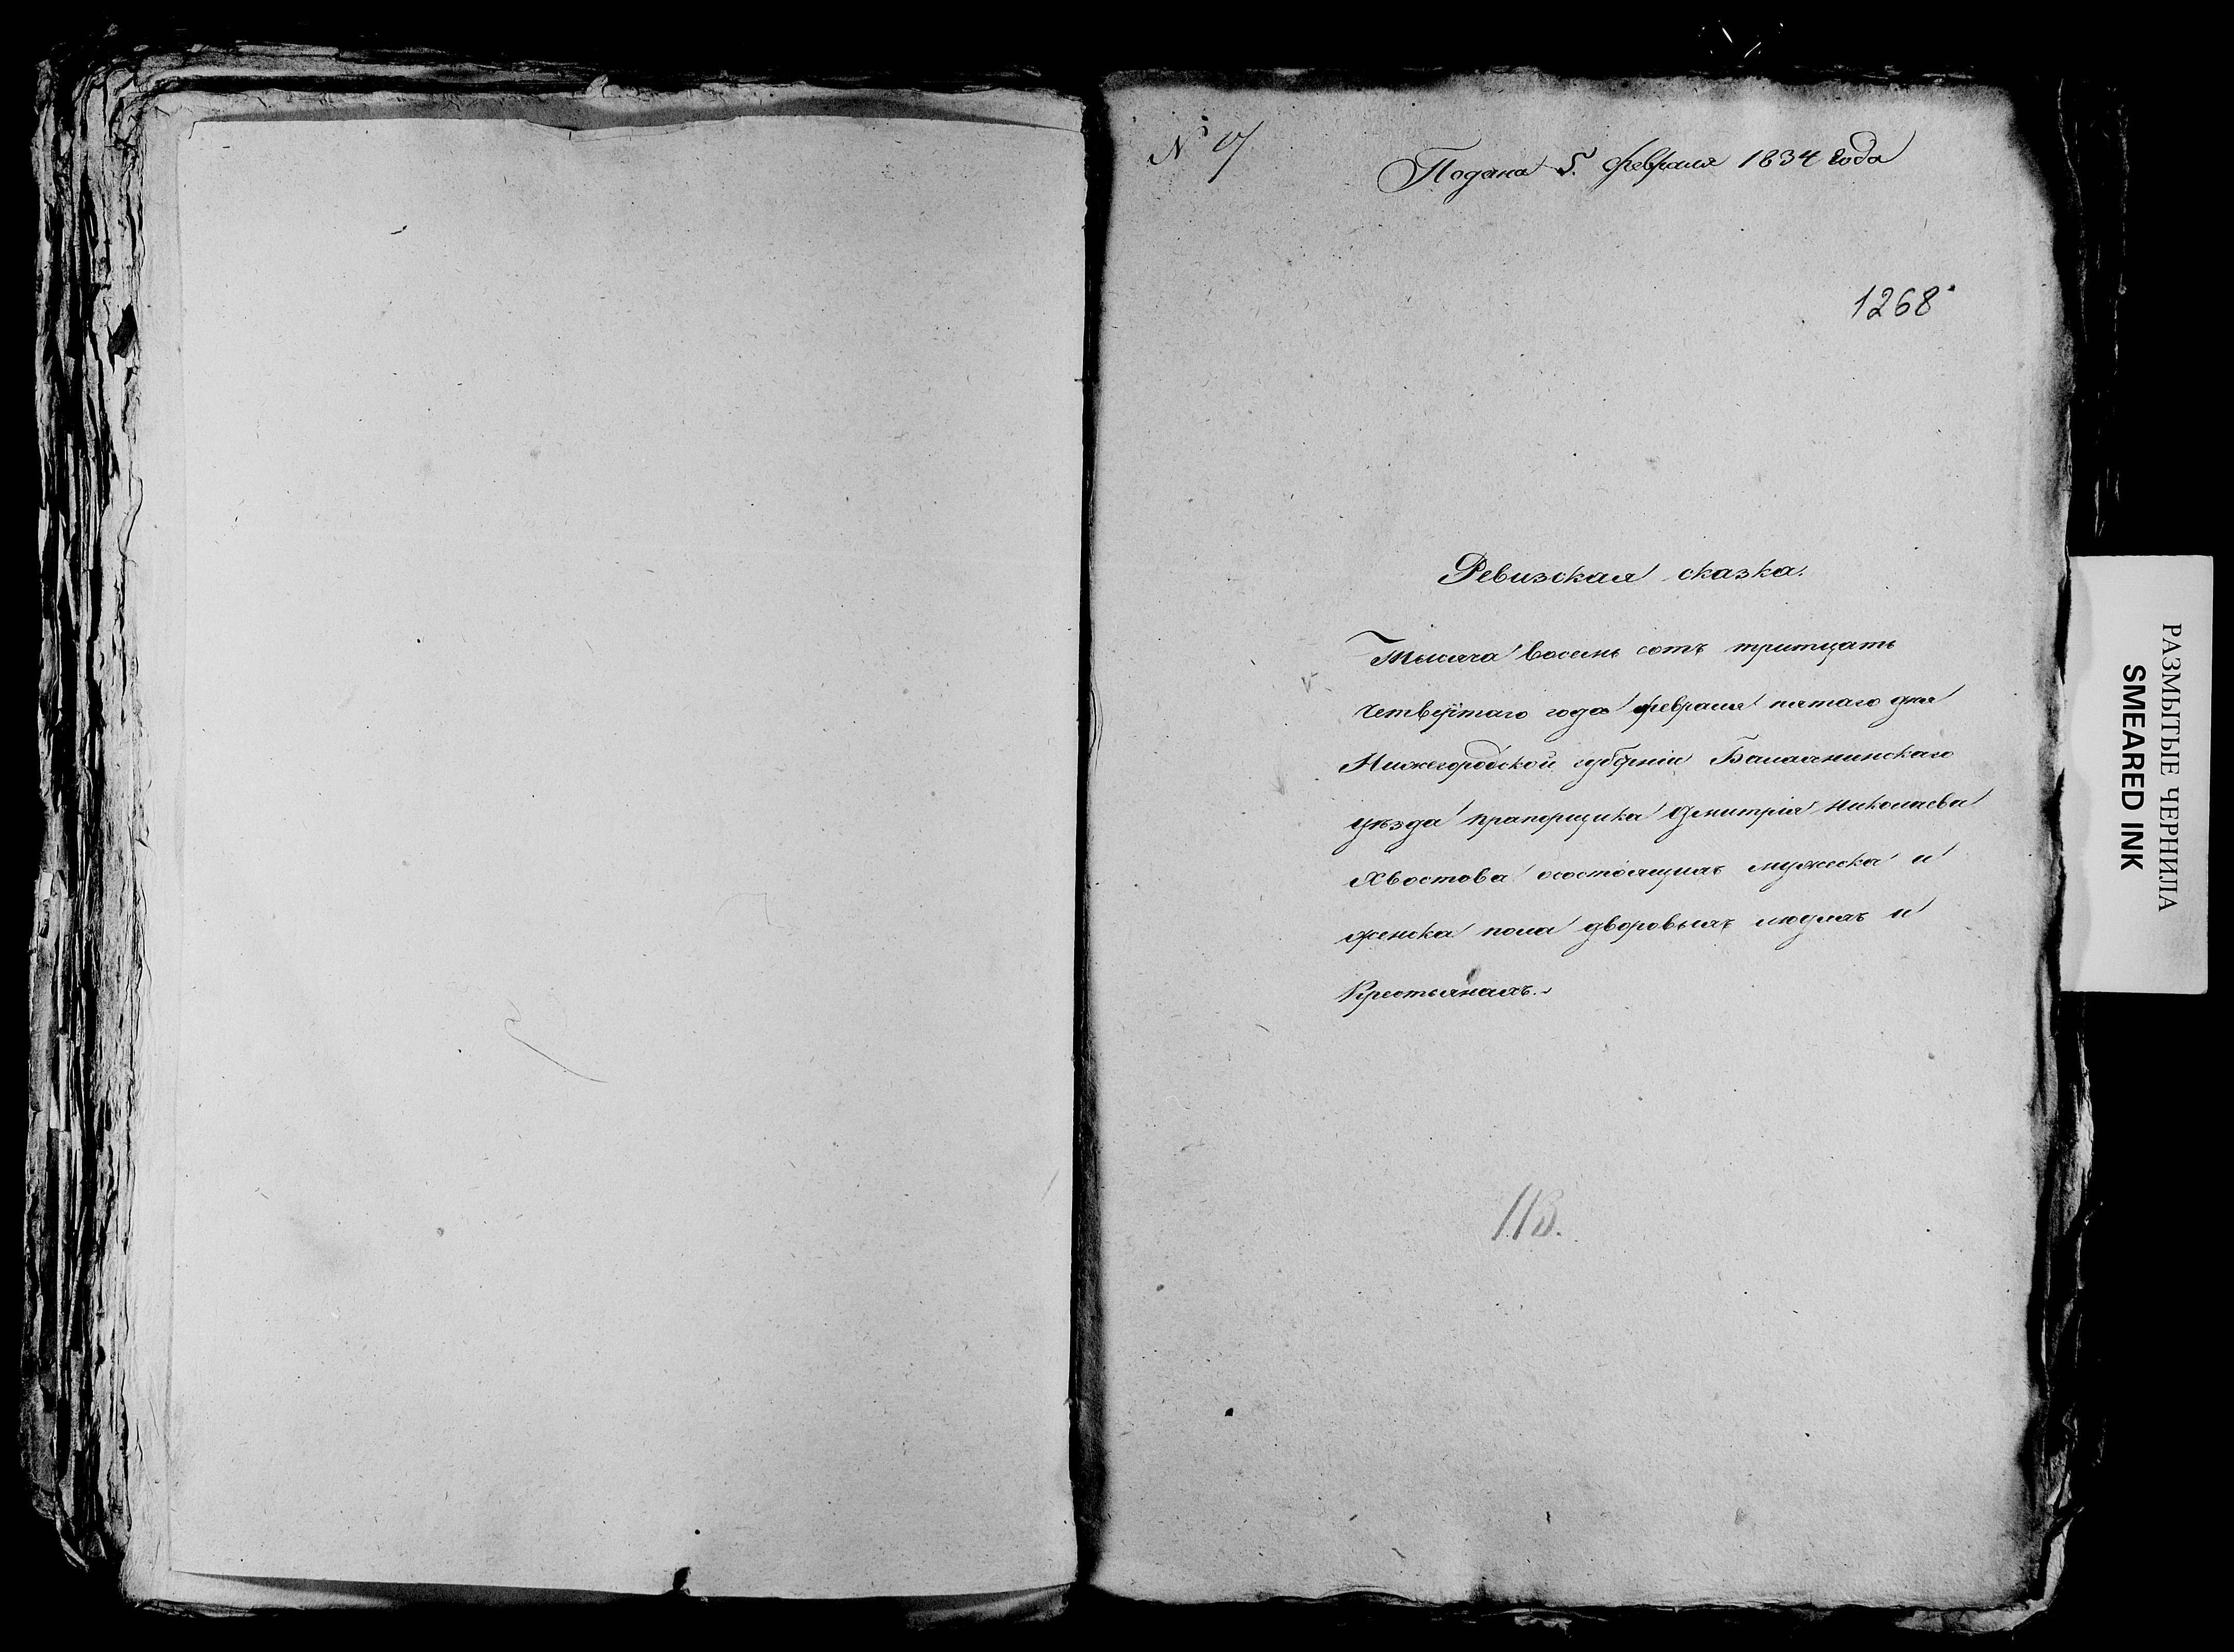 № 17
Подана 5. февраля 1834 года
1268
Ревизская сказка.
Тысяча восемь сотъ тритцать
четвертаго года февраля пятаго дня
Нижегородской губерніи Балахнинскаго
уѣзда прапорщика Дмитрія Николаева
Хвостова осостоящихъ мужеска и
женска пола дворовыхъ людяхъ и
Крестьянахъ.
113.
РАЗМЫТЫЕ ЧЕРНИЛА
SMEARED INK